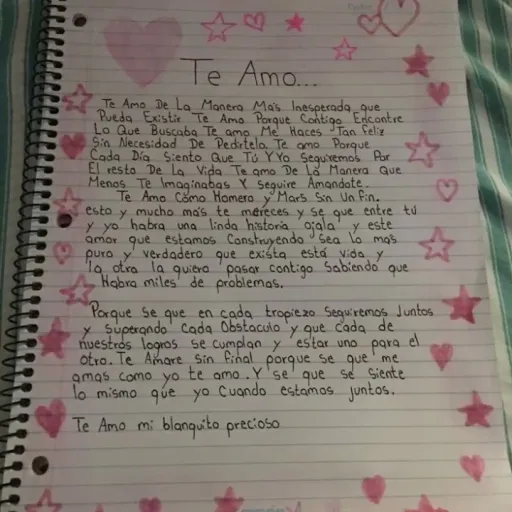 Te Amo...
Te Amo De La Manera Mas Inesperada que
Pueda Existir Te Amo Porque Contigo Encontre
Lo Que Buscaba Te amo Me Haces Tan feliz
Sin Necesidad De Pedirtela Te amo Porque
Cada Día Siento Que Tú Y Yo Seguiremos Por
El resto De La Vida Te amo De La Manera Que
Menos Te Imaginabas Y seguire Amandote.
Te Amo Como Homero y Mars Sin Un Fin.
esto y mucho mas te mereces y se que entre tú
y yo habra una linda historia ojala y este
amor que estamos Construyendo sea lo mas
puro y verdadero que exista está vida y
la otra la quiero pasar contigo Sabiendo que
Habra miles de problemas.
Porque se que en cada tropiezo Seguiremos Juntos
y Superando Cada Obstaculo y que cada de
nuestros logros se cumplan y estar uno para el
Otro. Te Amare Sin Final porque se que me
amas como yo te amo. Y se que se siente
lo mismo que yo Cuando estamos juntos.
Te Amo mi blanquito precioso